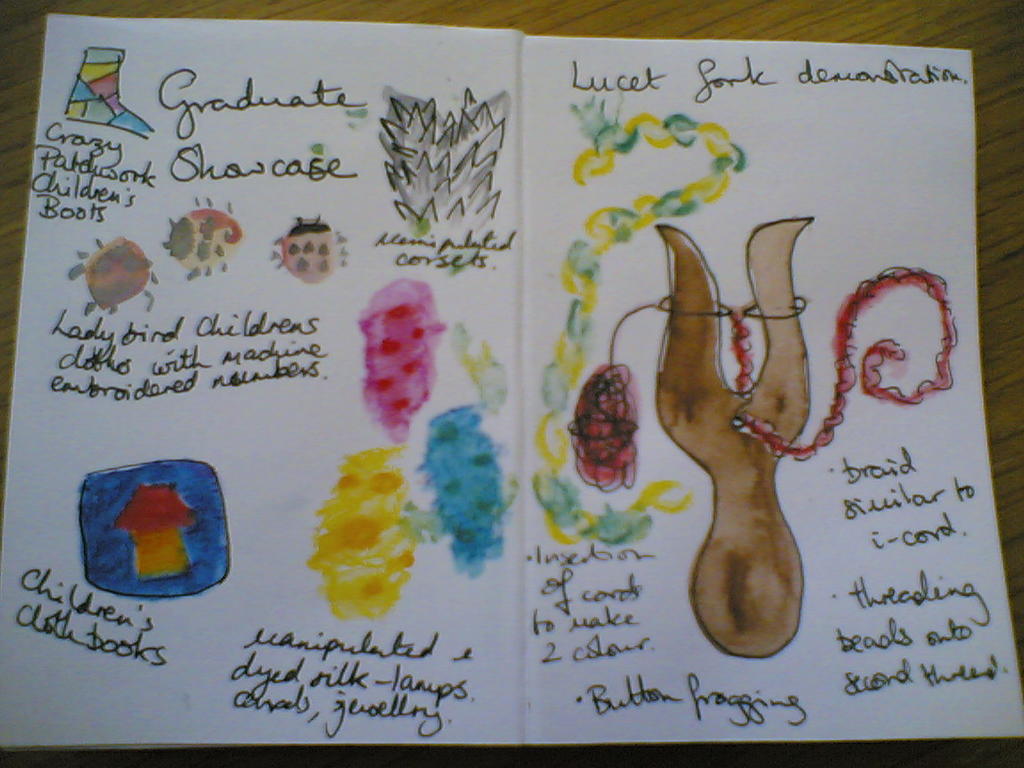 Graduate
Showcase
Crazy
Patchwork
Children's
Boots
manipulated
corsets.
Ladybird Childrens
clothes with machine
embroidered numbers.
Children's
Cloth books
manipulated &
dyed silk - lamps.
jewellery.
Lucet fork demonstration.
· braid
similar to
i-cord.
· Insertion
of cord
to make
2 colour.
· threading
beads onto
second thread.
· Button frogging